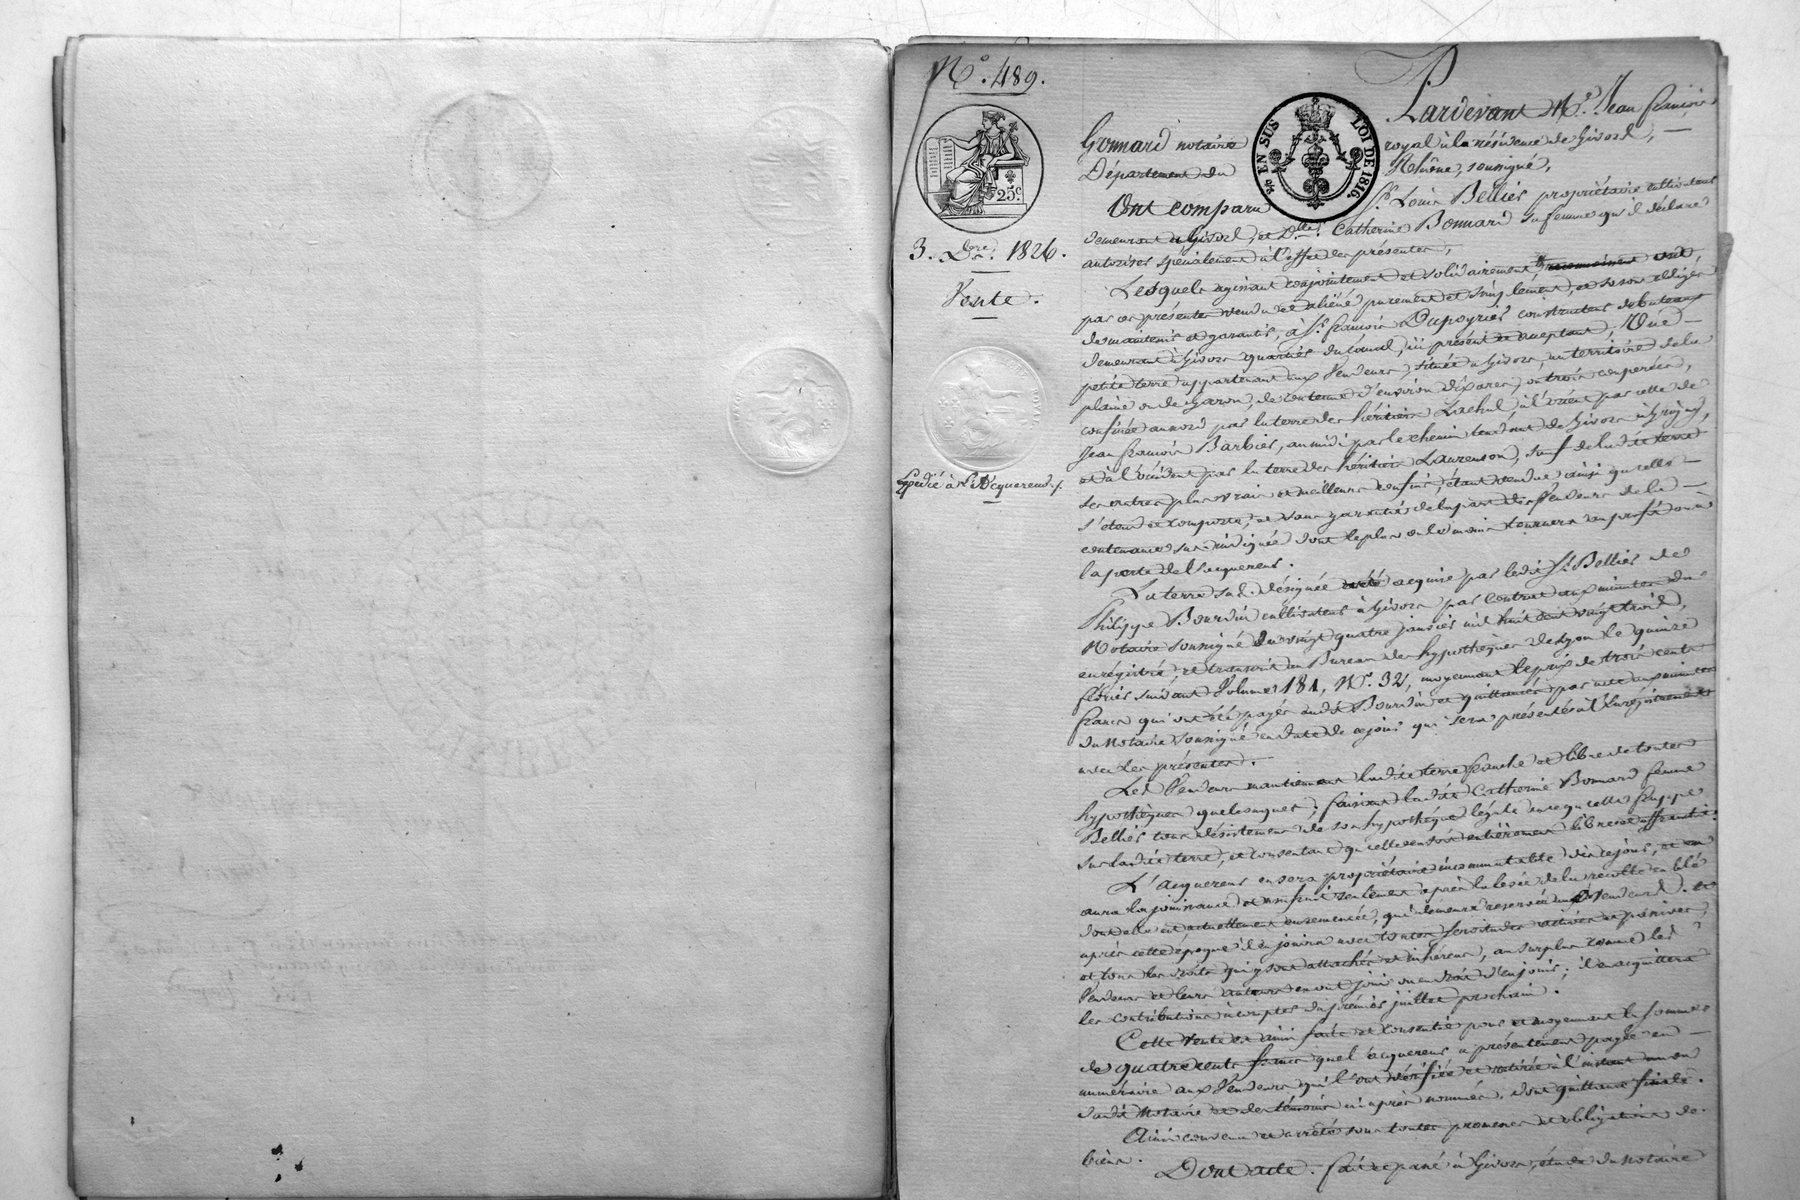 N.º 489.
25.c
3. Xbre 1826.
Vente.
Expédié à l'Acquereur
EN SUS LOI DE 1816.
Pardevant M.e Jean françois
Gonnard notaire royal à la résidence de Givors, —
Département du Rhône, soussigné,
Ont comparu Sr. Louis Bellier propriétaire cultivateur
demeurant à Givors, et D.lle Catherine Bonnard sa femme qu'il déclare
autoriser spécialement à l'effet des présentes,
Lesquels agissant conjointement et solidairement, ont,
par ces présentes vendu et aliéné purement et simplement, et se sont obligés
de maintenir et garantir, à Sr. françois Dupoyrier constructeur de bateaux
demeurant à Givors quartier du Canal, ici présent et acceptant, Une —
petite terre appartenant aux Vendeurs, située à Givors, au territoire de la
plaine ou de Garon, de contenue d'environ dix ares, ou trois couperées,
confinée au nord par la terre des héritiers Lachal, à l'orient par celle de
Jean françois Barbier, au midi par le chemin tendant de Givors à Grigny,
et à l'occident par la terre des héritiers Laurenson, sauf de ladite terre
ses autres plus vrais et meilleurs confins, étant vendue ainsi qu'elle —
s'étend et comporte, et sans garantie de la part des Vendeurs de la —
contenance sus-indiquée dont le plus ou le moins tournera au profit ou à
la perte de l'acquereur.
La terre sus-désignée acquise par ledit Sr. Bellier de
Philippe Bourdin cultivateur à Givors par Contrat aux minutes du
Notaire soussigné du vingt quatre janvier mil huit cent vingt trois,
enrégistré, et transcrit au Bureau des hypothèques de Lyon le quinze
février suivant Volume 181, N.º 32, moyennant le prix de trois cents
francs qui ont été payés audit Bourdin et quittancés par acte aux minutes
du Notaire soussigné en date de ce jour qui sera présenté à l'enrégistrement
avec les présentes.
Les Vendeurs maintiennent ladite terre franche et libre de toutes
hypothèques quelconques; faisant ladite Catherine Bonnard femme
Bellier tous désistement de son hypothèque légale en ce qu'elle frappe
sur ladite terre, et consentant qu'elle en soit entièrement libre et affranchie.
L'acquereur en sera propriétaire incommutable dès ce jour, et en
aura la jouissance et usufruit seulement après la levée de la récolte en blé
dont elle est actuellement ensemencée, qui demeure reservée aux Vendeurs. et
après cette époque il en jouira avec toutes servitudes actives et passives,
et tous les droits qui y sont attachés et inhérens, au surplus comme les
Vendeurs et leurs auteurs en ont joui ou eu droit d'en jouir; il en acquittera
les contributions à compter du premier juillet prochain.
Cette vente est ainsi faite et consentie pour et moyennant la somme
de quatre cents francs que l'acquereur a présentement payée en —
numéraire aux Vendeurs qui l'ont vérifiée et retirée à l'instant au vu
dudit Notaire et des témoins ci après nommés, dont quittance finale.
Ainsi convenu et arrêté sous toutes promesses et obligations de
biens.
Dont acte. fait et passé à Givors, étude du Notaire